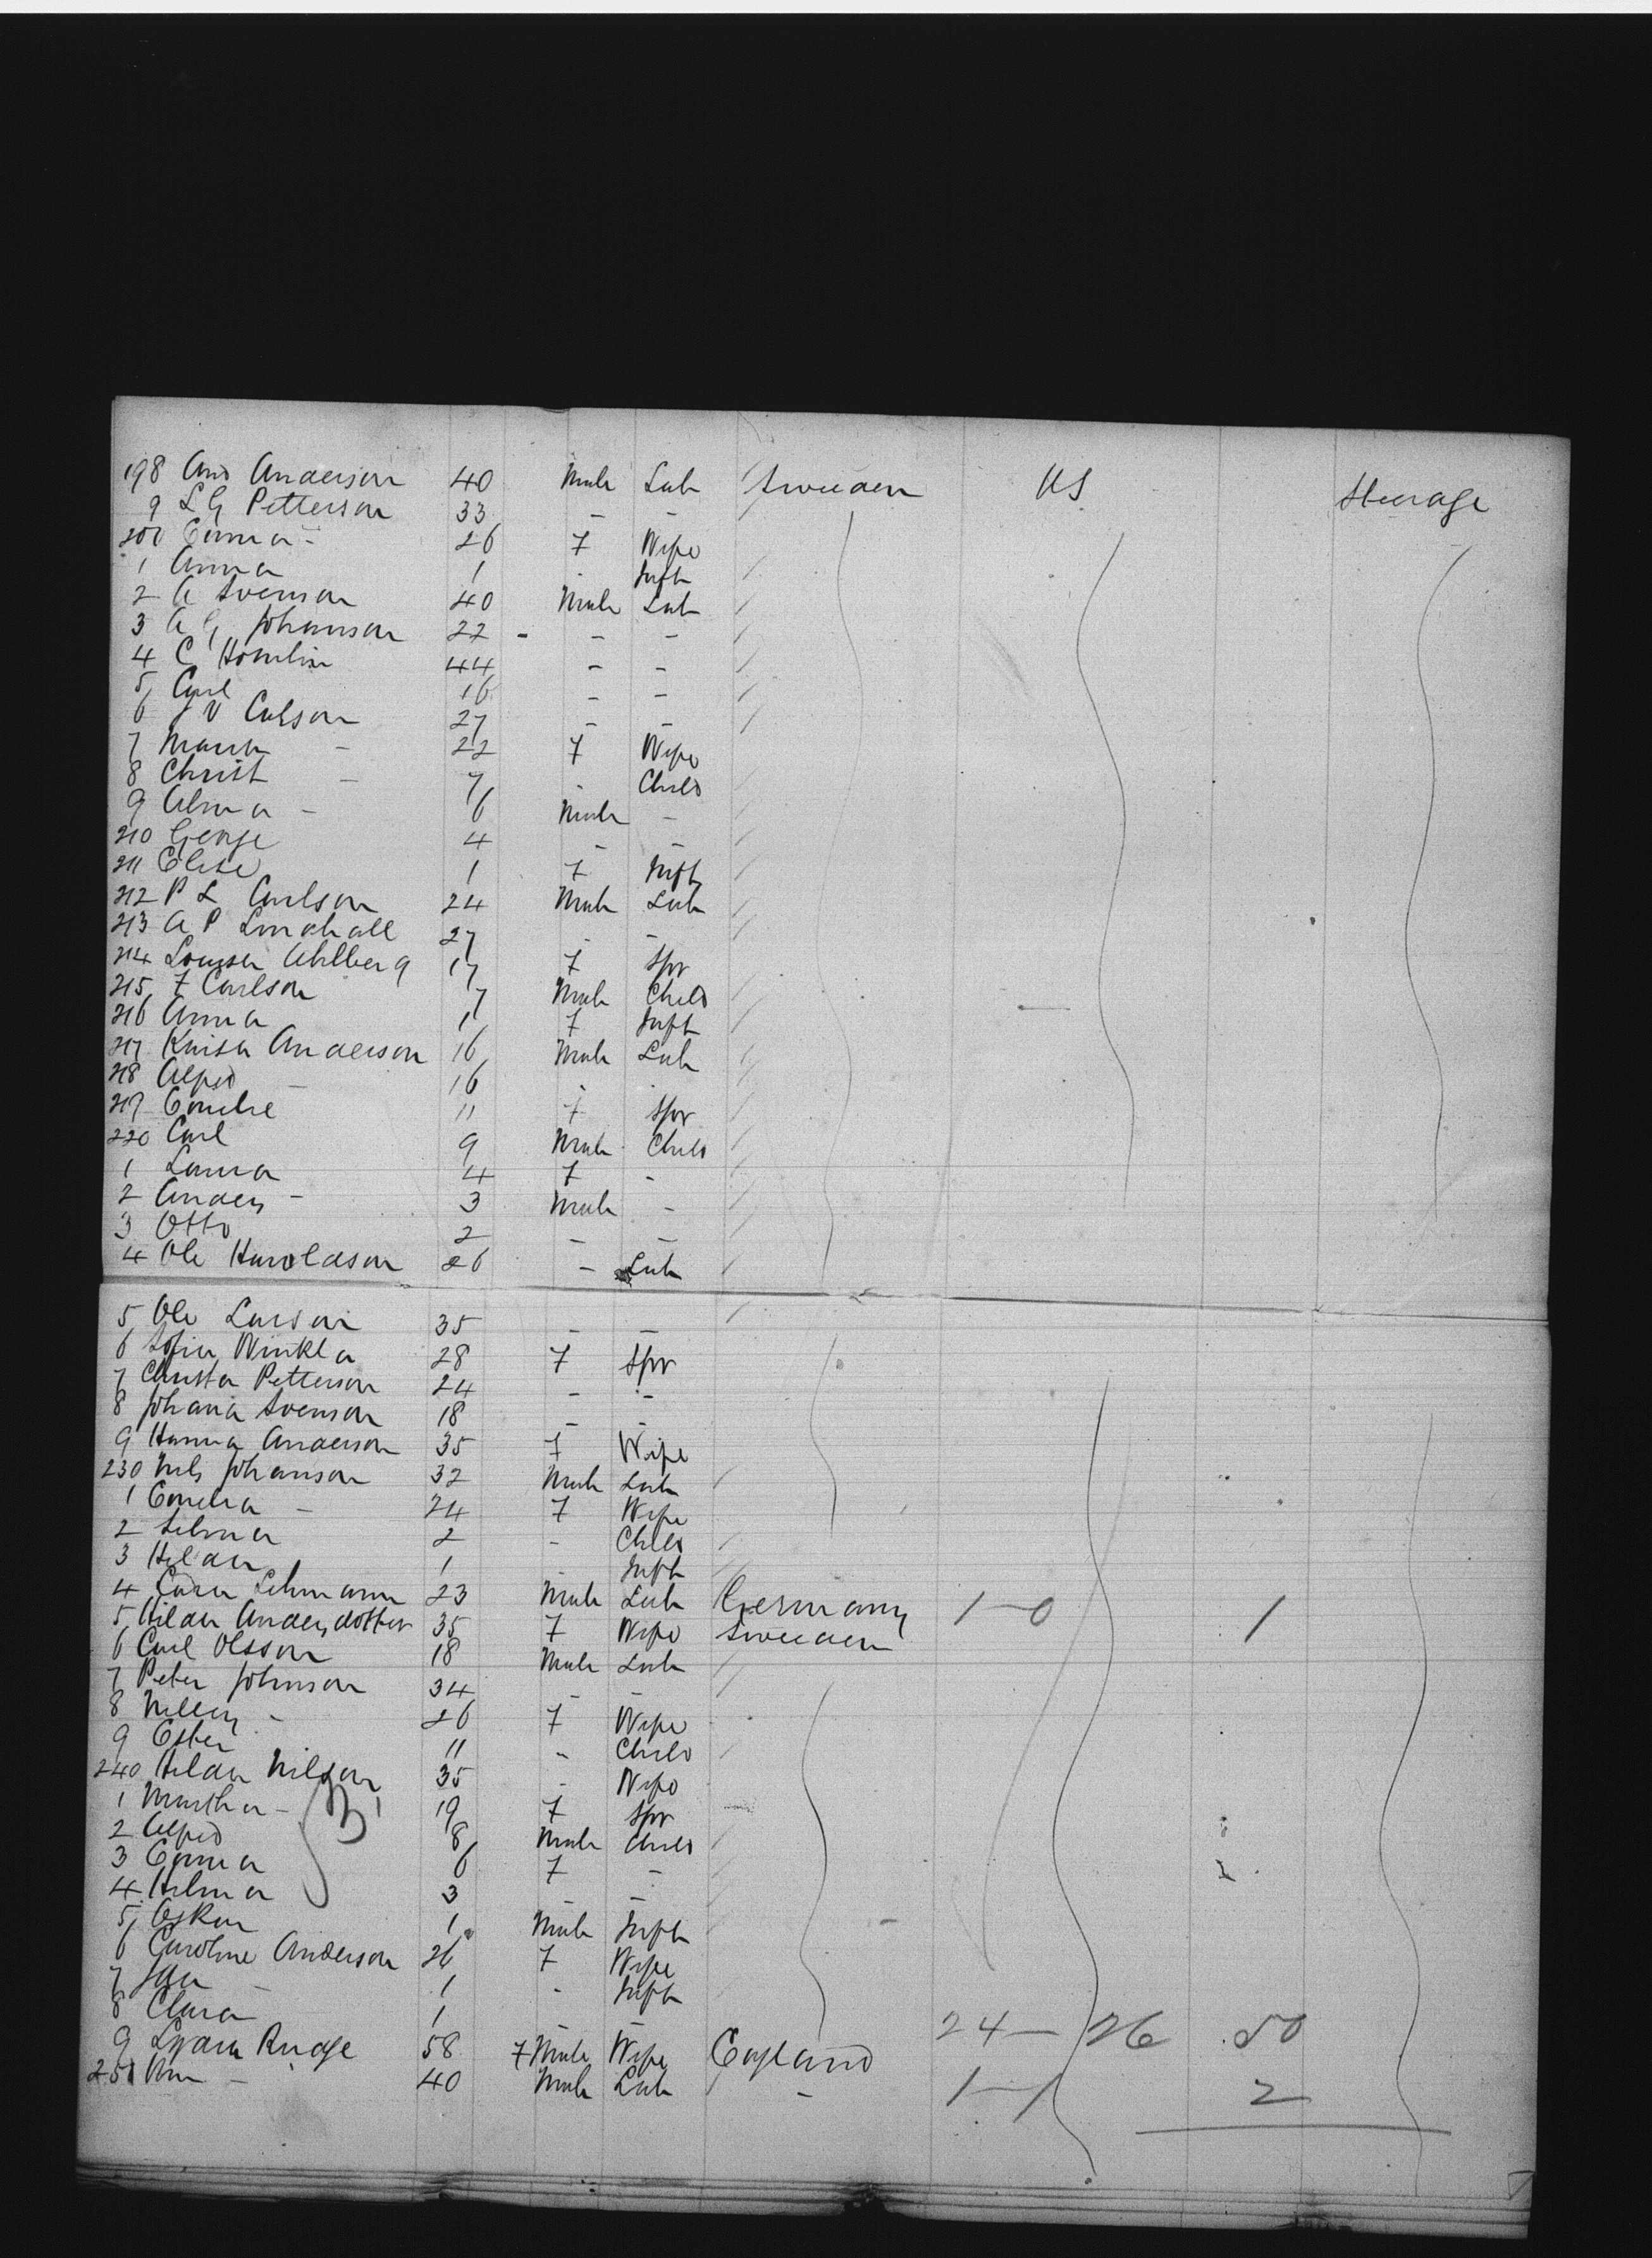 198 And Anderson 40 Male Lab Sweden US Steerage
9 L G Petterson 33 - -
200 Emma - 26 F Wife
1 Anna 1 - Inft
2 A Svenson 40 Male Lab
3 A G Johanson 22 - - -
4 C Homlin 44 - -
5 Carl 16 - -
6 J V Carlson 27 - -
7 Maria - 22 F Wife
8 Christ - 7 - Child
9 Alma - 6 Male -
210 George 4 - -
211 Elise 1 F Inft
212 P L Carlson 24 Male Lab
213 A P Lindhall 27 - -
214 Lovisa Ahlberg 17 F Spr
215 F Carlson 7 Male Child
216 Anna 1 F Inft
217 Anderson 16 Male Lab
218 Alfred - 16
219 Emelie 11 F Spr
220 Carl 9 Male Child
1 Laura 4 F -
2 Anders - 3 Male -
3 Otto 2 - -
4 Ole Haroldson 26 - Lab
5 Ole Larson 35 - -
6 Sofia Winkla 28 F Spr
7 Christa Petterson 24 - -
8 Johana Svenson 18 - -
9 Hanna Anderson 35 F Wife
230 Nils Johanson 32 Male Lab
1 Emelia - 24 F Wife
2 Selma 2 - Child
3 Hilda 1 Inft
4 Lehmann 23 Male Lab Germany 1-0 1
5 Hilda Andersdotter 35 F Wife Sweden
6 Carl Olsson 18 Male Lab
7 Peter Johnson 34 - -
8 Nelly - 26 F Wife
9 Ester 11 - Child
240 Hilda Nilson 35 - Wife
1 Martha - 19 F Spr
2 Alfred 8 Male Child
3 Emma 6 F -
4 Hilma 3 - -
5 Oskar 1 Male Inft
6 Caroline Anderson 26 F Wife
7 Ida - 1 - Inft
8 Clara 1 - -
9 Rudge 58 F Male Wife England 24-26 50
250 Wm - 40 Male Lab - 1-1 2